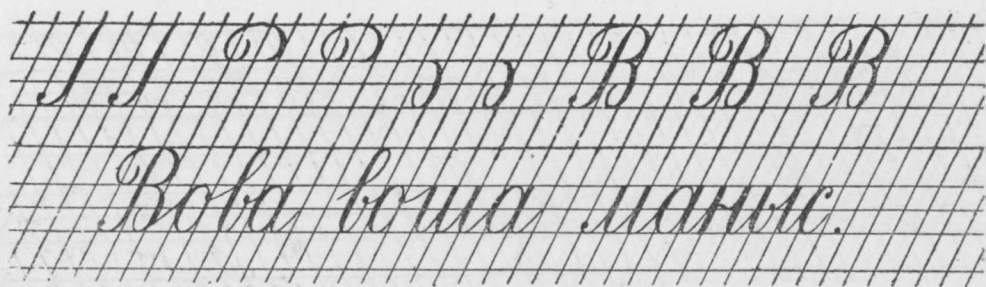 В В В
Вова воша маныс.